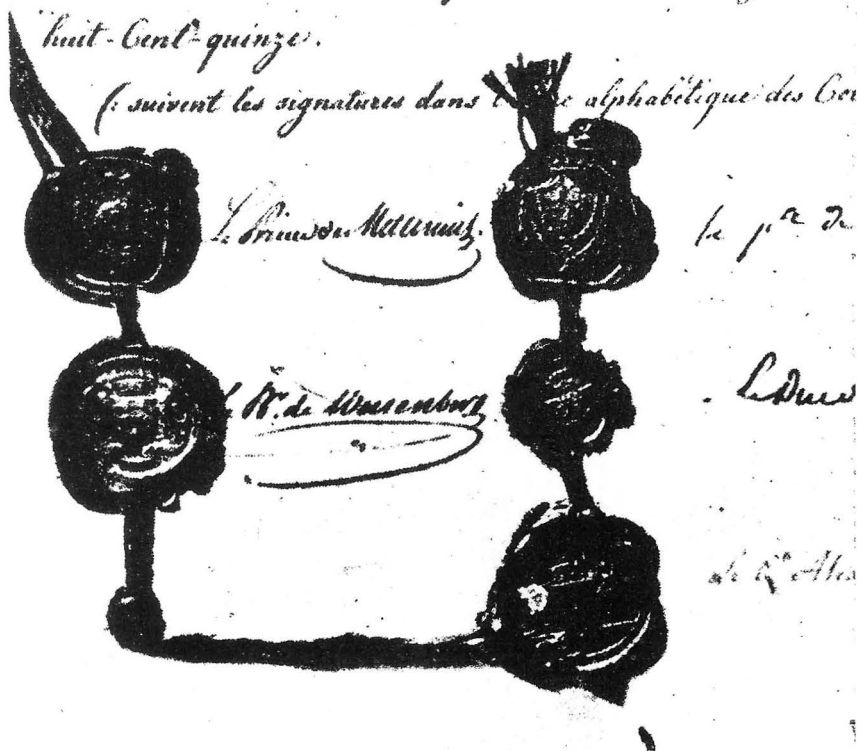 huit-Cent-quinze.
(: suivent les signatures dans alphabétique des
Le Prince de Metternich. le pce de
Le Bn. de Wessenberg . Le Duc
Le Cte Alex